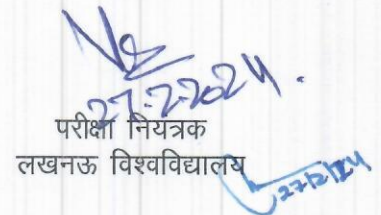 27-2-2024.
परीक्षा नियत्रक
लखनऊ विश्वविद्यालय
27/2/24